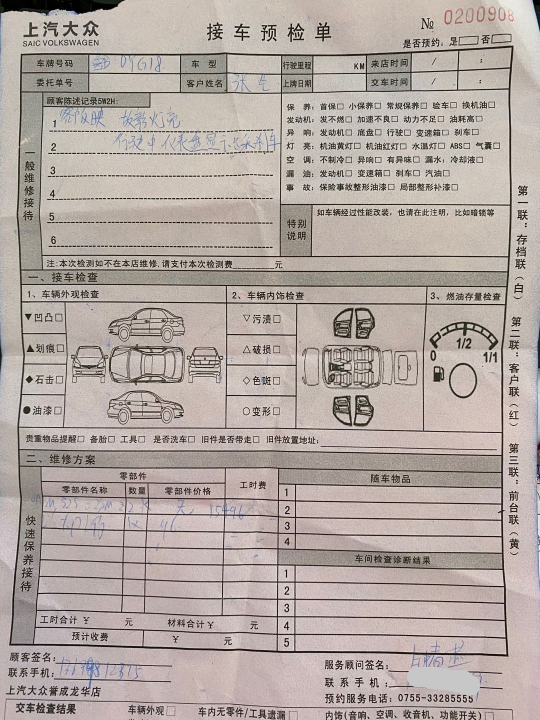 上汽大众
SAIC VOLKSWAGEN
接车预检单
№ 0200908
是否预约: 是□ 否□
车牌号码 09G18 车型 行驶里程 KM 来店时间 / :
委托单号 客户姓名 上牌日期 交车时间 / :
一般维修接待
顾客陈述记录5W2H:
1 客饭映 故障灯亮
2
3
4
5
6
注:本次检测如不在本店维修,请支付本次检测费 元
保养: 首保□ 小保养□ 常规保养□ 验车□ 换机油□
发动机: 发不燃□ 加速不良□ 动力不足□ 油耗高□
异响: 发动机□ 底盘□ 行驶□ 变速箱□ 刹车□
灯亮: 机油黄灯□ 机油红灯□ 水温灯□ ABS□ 气囊□
空调: 不制冷□ 异响□ 有异味□ 漏水: 冷却液□
漏油: 发动机□ 变速箱□ 刹车□ 汽油□
事故: 保险事故整形油漆□ 局部整形补漆□
特别说明
如车辆经过性能改装,也请在此注明,比如暗锁等
一、接车检查
1、车辆外观检查 2、车辆内饰检查 3、燃油存量检查
▼凹凸□ ▽污渍□
▲划痕□ △破损□
◆石击□ ◇色斑□
●油漆□ ○变形□
0 1/2 1/1
贵重物品提醒□ 备胎□ 工具□ 是否洗车□ 旧件是否带走□ 旧件放置地址:
二、维修方案
快速保养接待
零部件 工时费
零部件名称 数量 零部件价格
随车物品
1
2
3
4
车间检查诊断结果
1
2
3
4
5
工时合计 ¥ 元 材料合计 ¥ 元
预计收费 ¥ 元
顾客签名:
联系手机:
上汽大众誉成龙华店
服务顾问签名:
联系手机:
预约服务电话: 0755-33285555
交车检查结果 车辆外观□ 车内无零件/工具遗漏□ 内饰(音响、空调、收音机、功能开关)□
第一联:存档联(白) 第二联:客户联(红) 第三联:前台联(黄)